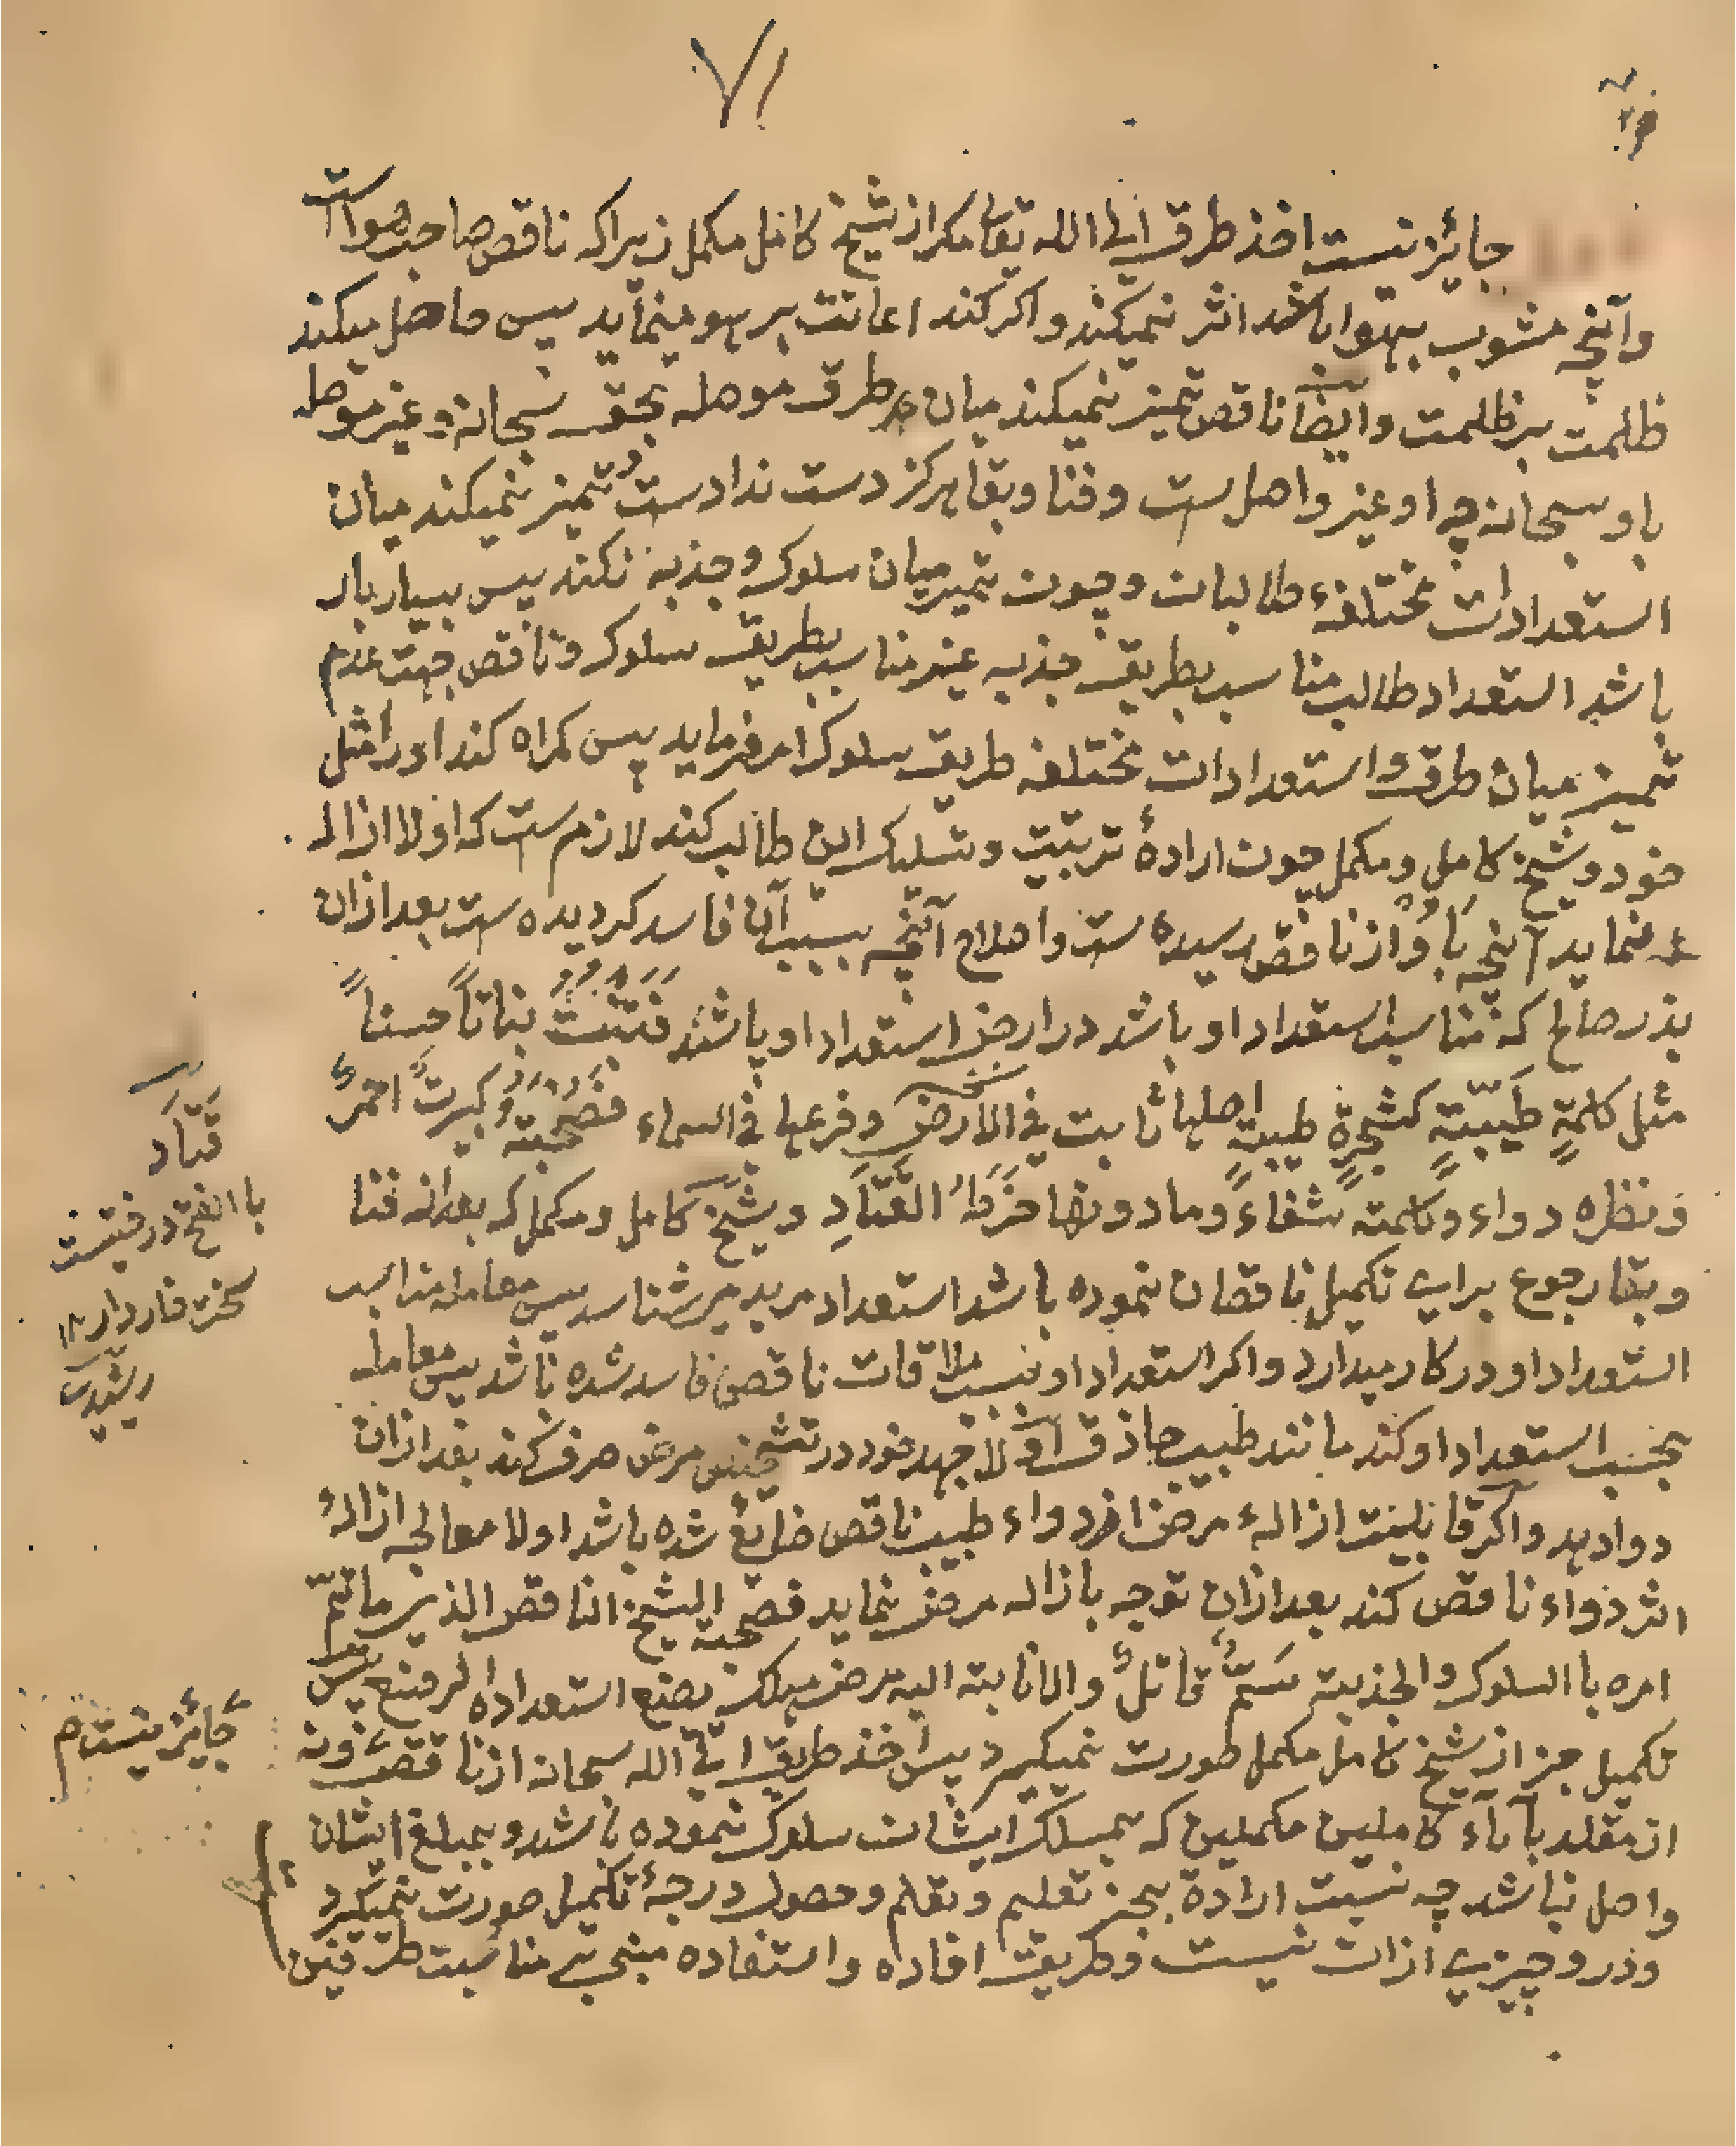 ٧١
جائز نیست اخذ طرق الی الله تعا مکر از شیخ کامل مکمل زیراکه ناقص صاحب هوا است
وآنچه مشوب بهوا باشد اثر نمیکند واکر کند اعانت بر هو مینماید پس حاصل میکند
ظلمت بر ظلمت وایضا ناقص تمیز نمیکند میان طرق موصله بحق سبحانه و غیر موصله
باو سبحانه چه او غیر واصل ست وفنا وبقا هرکز دست ندادست و تمیز نمیکند میان
استعدادات مختلفهٔ طالبان وچون تمیز میان سلوک وجذبه نکند پس بسیار بار
باشد استعداد طالب مناسب بطریق جذبه غیر مناسب بطریق سلوک وناقص جهت عدم
تمییز میان طرق و استعدادات مختلفه طریق سلوک امر فرماید پس کمراه کند اورا مثل
خود و شیخ کامل ومکمل چون ارادهٔ تربیت وتسلیک این طالب کند لازم ست که اولا ازاله
نماید آنچه باو از ناقص رسیده ست واصلاح آنچه بسبب آن فاسد کردیده ست بعد ازان
بذر صالح که مناسب استعداد او باشد در ارض استعداد او پاشد فتنبت نباتاً حسناً
مثل کلمةٍ طیّبةٍ کشجرةٍ طیبةٍ اصلها ثابت فی الارض وفرعها فی السماء فصحبته کبریت احمر
ونظره دواء وکلمته شفاء وما دونها خرط القتادِ وشیخ کامل ومکمل که بعد از فنا
وبقا رجوع برای تکمیل ناقصان نموده باشد استعداد مرید میشناسد پس معامله مناسب
استعداد او در کار میدارد واکر استعداد او بسبب ملاقات ناقص فاسد شده باشد پس معامله
بحسب استعداد او کند مانند طبیب حاذق اولا جهد خود در تشخیص مرض صرف کند بعد ازان
دوا دهد واکر قابلیت ازالهٔ مرض از دواء طبیب ناقص ضایع شده باشد اولا معالجه ازالهٔ
اثر دواء ناقص کند بعد ازان توجه بازاله مرض نماید فصحبة الشیخ الناقص الذی ما تمّ
امره باالسلوک والجذبة سمّ قاتلٌ والانابته الیه مرض مهلک یضع استعداده الرفیع پس
تکمیل جز از شیخ کامل مکمل صورت نمیکیرد پس اخذ طریق الی الله سبحانه از ناقص ونه
از مقلد بآباء کاملین مکملین که بمسلک ایشان سلوک ننموده باشد و بمبلغ ایشان
واصل نباشد چه نسبت ارادة بجز تعلیم وتعلم وحصول درجهٔ تکمیل صورت نمیکیرد
ودر و چیزی ازان نیست وطریق افاده واستفاده مبنی بر مناسبت طرفین
قَتَاد
باالفتح درختیست
سخت خاردار ١٢
رشیدی
جائز نیست م